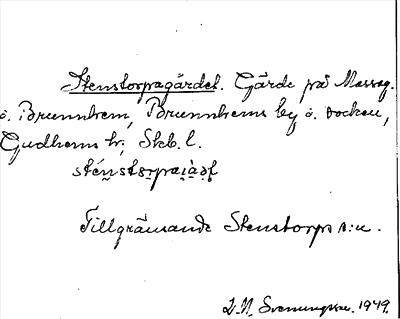 Stenstorpagärdet. Gärde på Mosseg.
ö. Brunnhem, Brunnhems by o. socken,
Gudhems hr; Skb. l.
Tillgränsande Stenstorps s:n.
Svenungsson. 1949.